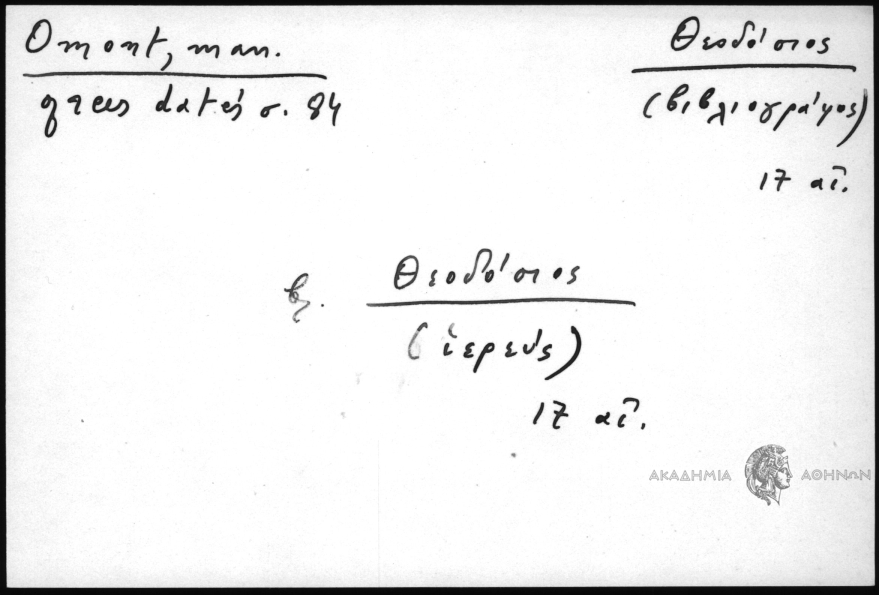 Omont, man.
grecs datés σ. 84
Θεοδόσιος
(βιβλιογράφος)
17 αἰ.
βλ. Θεοδόσιος
(ἱερεύς)
17 αἰ.
ΑΚΑΔΗΜΙΑ ΑΘΗΝΩΝ